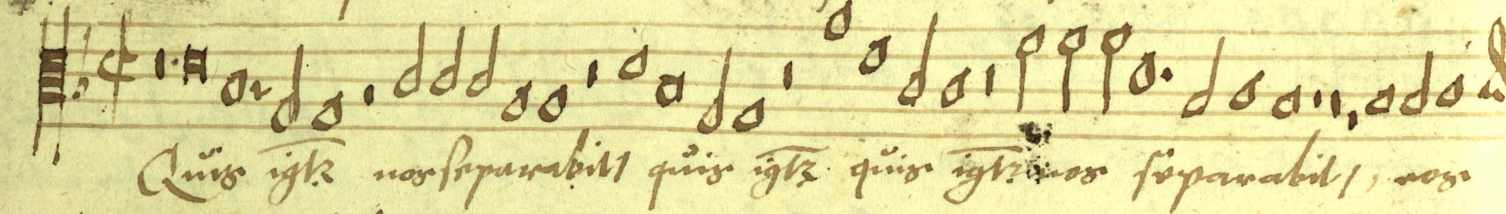 Quis igtr nos separabit quis igtr quis igtr nos separabit, nos